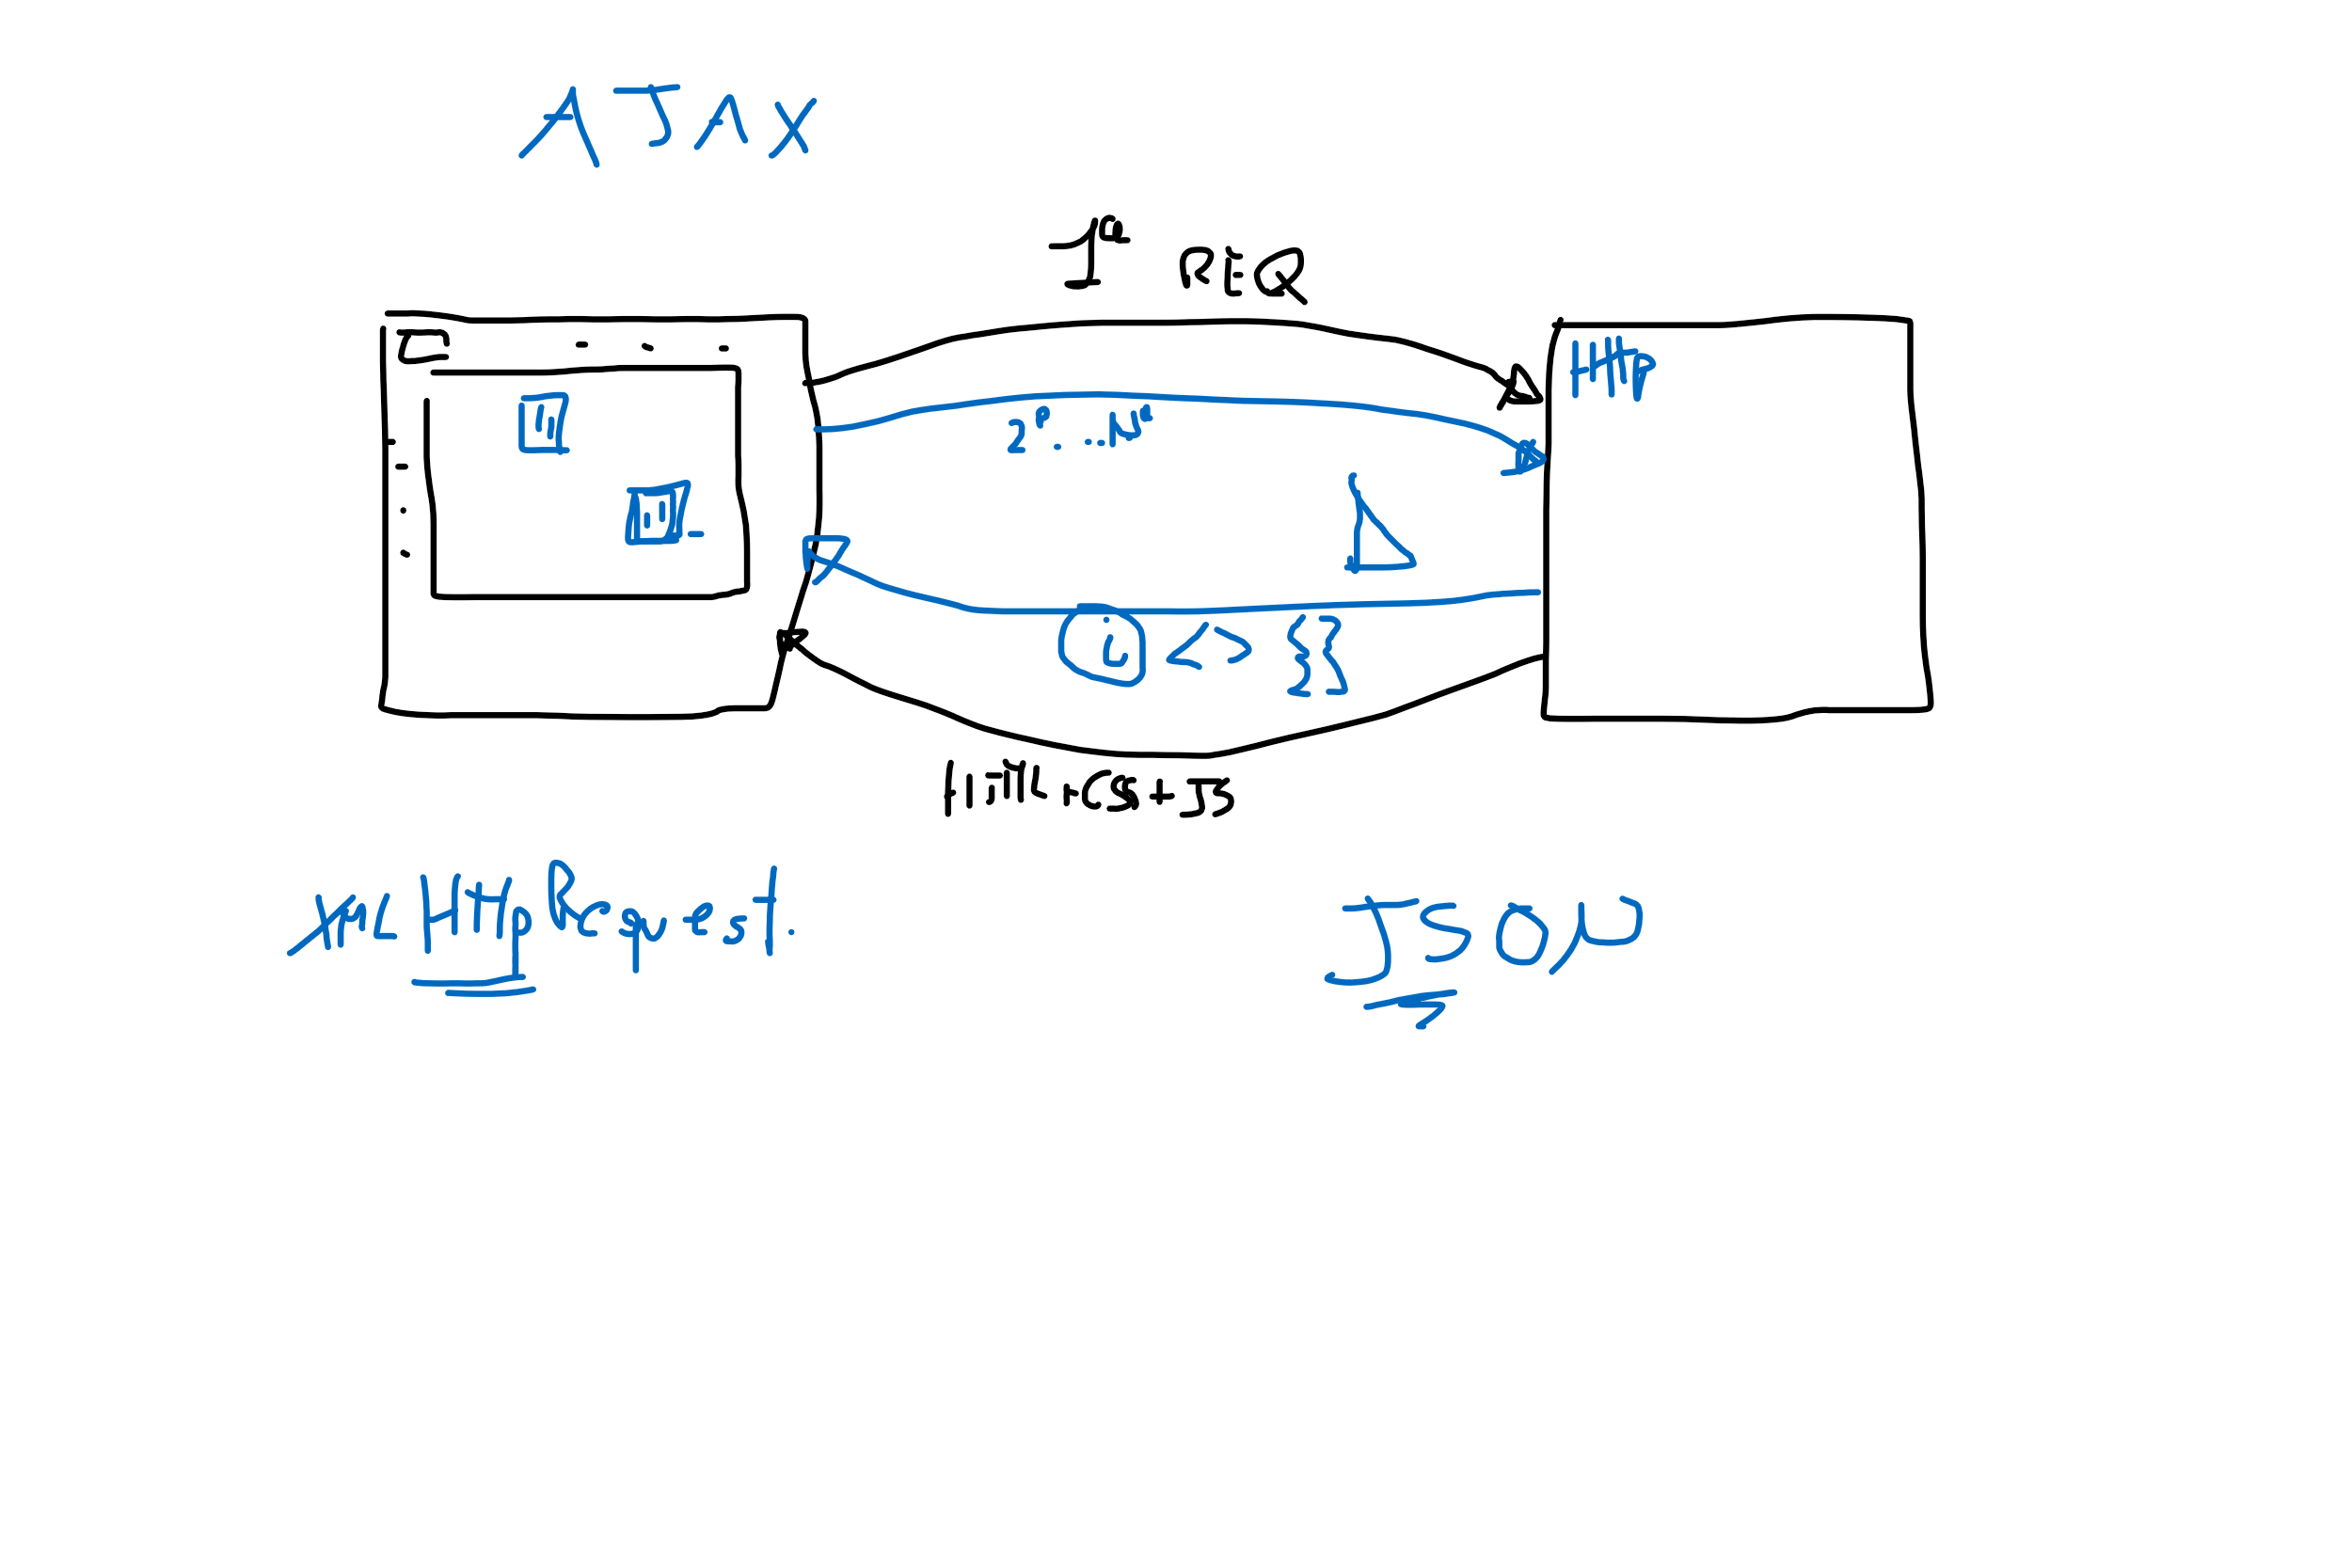 AJAX
1re REQ
HttP
2e ... Ne
i <> { }
HTML + CSS + JS
XMLHttpRequest.
JSON